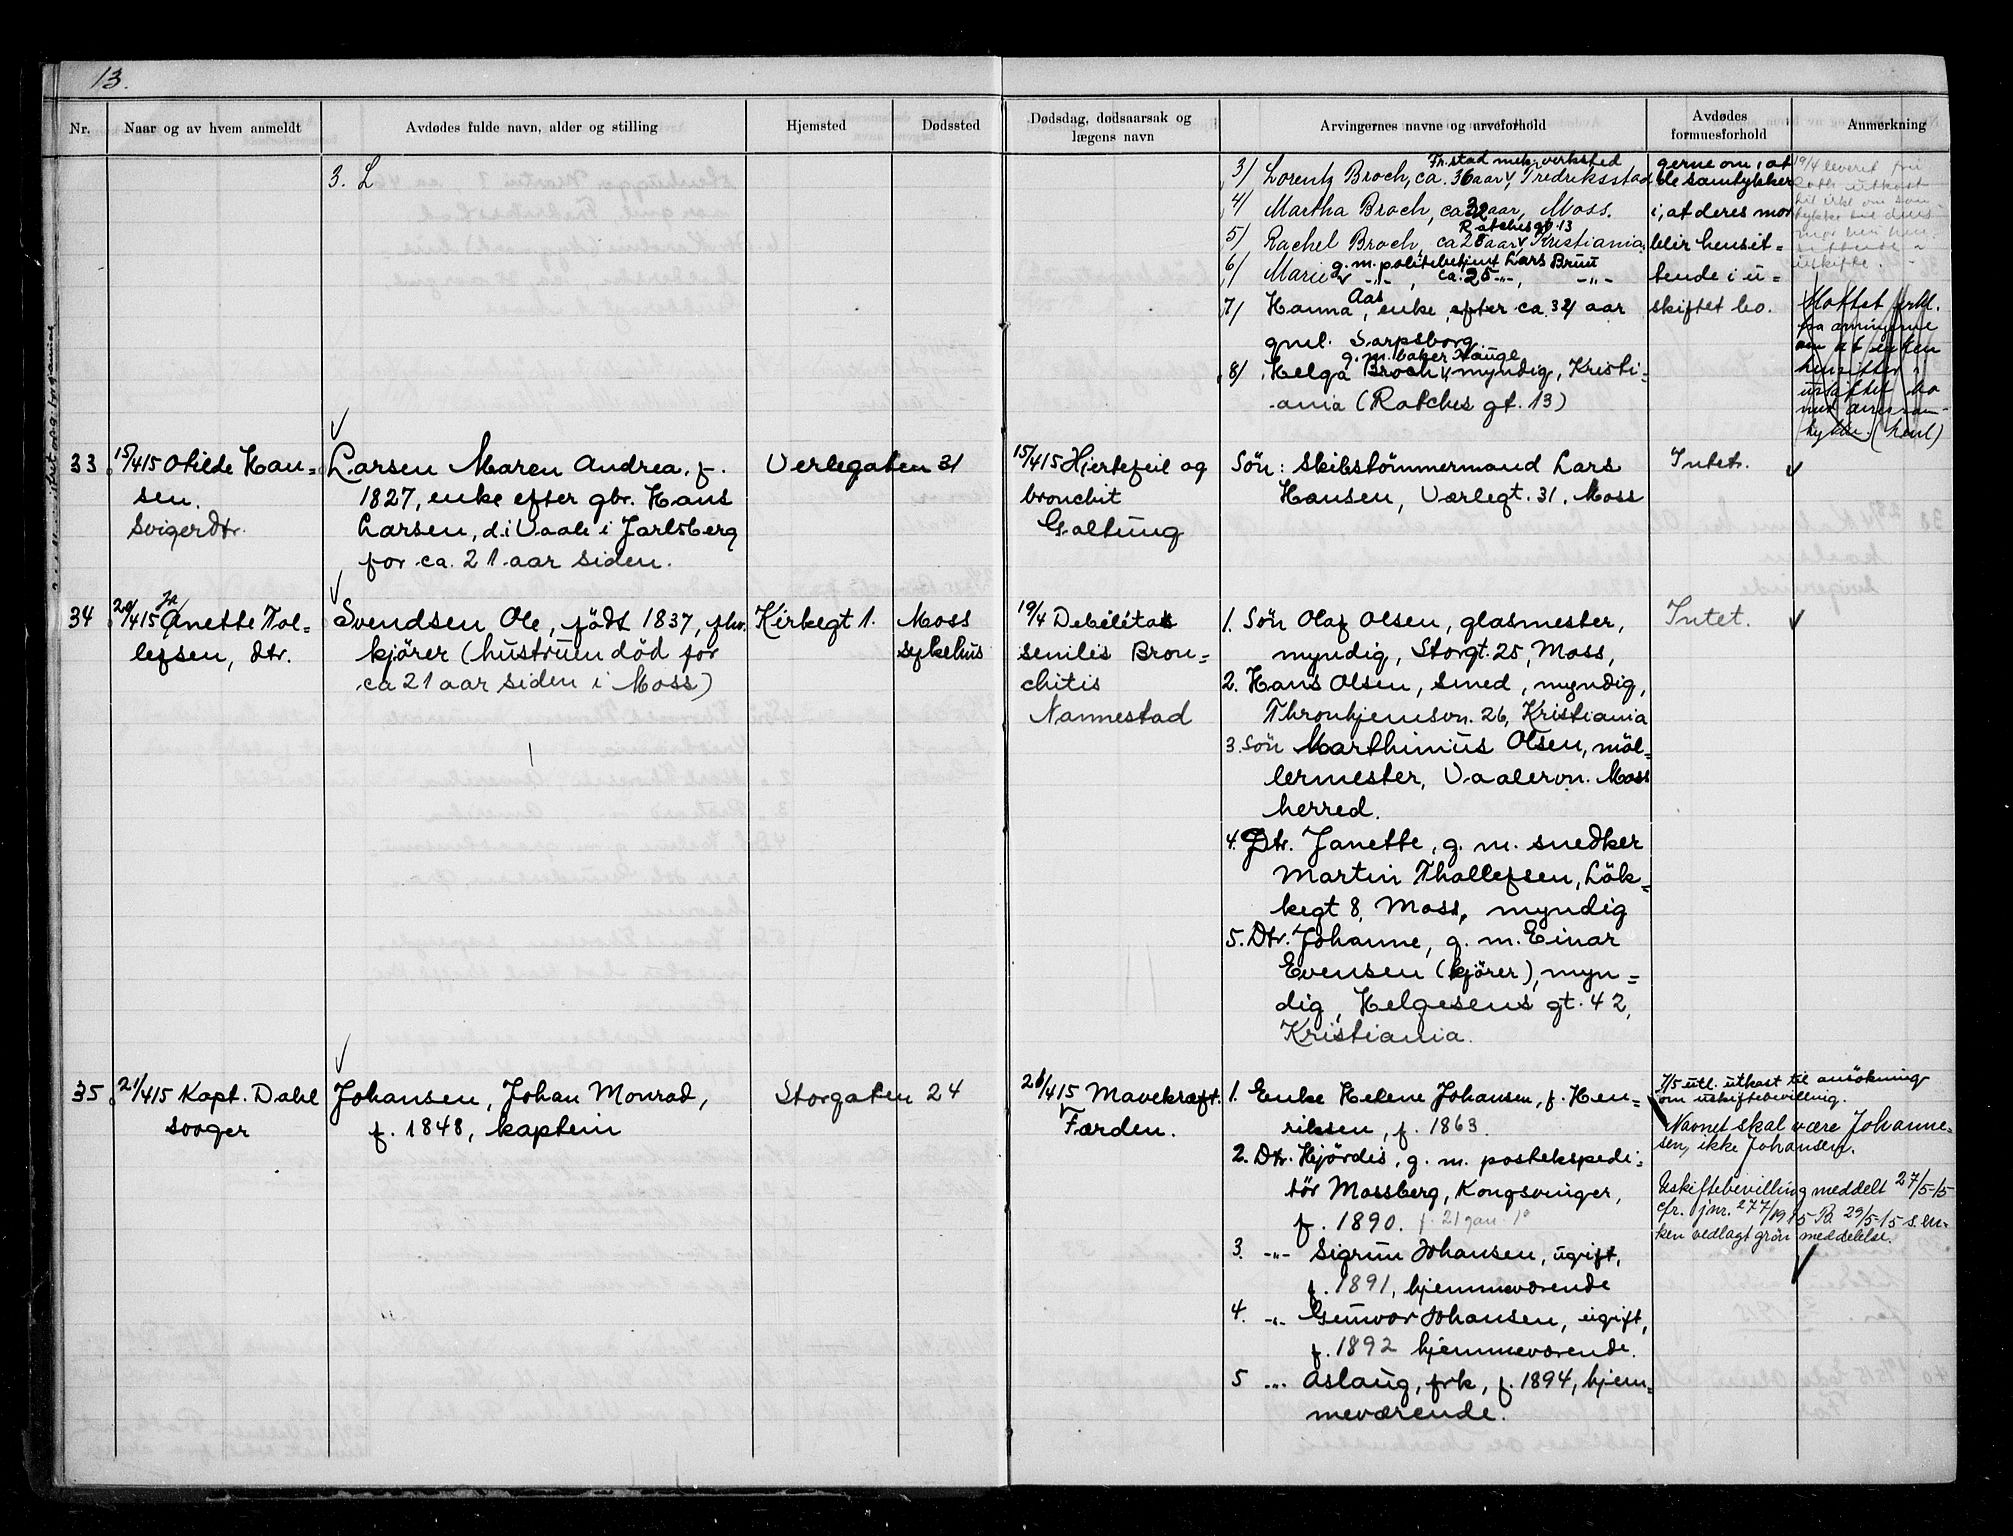 13.
Nr.
Naar og av hvem anmeldt
Avdødes fulde navn, alder og stilling
Hjemsted
Dødssted
Dødsdag, dødsaarsak og
lægens navn
Arvingernes navne og arveforhold
Avdødes
formuesforhold
Anmerkning
3. L
Fr.stad mek. verksted
3/ Lorentz Broch, ca. 36 aar, Fredriksstad
4/ Martha Broch, ca 32 aar, Moss.
Ratches gt 13
5/ Rachel Broch, ca 28 aar, Kristiania
g. m. politibetjent Lars Bruu
6/ Marie -"-, ca. 25 -"-, -"-
7/ Hanna Aas, enke, efter ca. 34 aar
gml. Sarpsborg
g. m. baker Hauge
8/ Helga Broch, myndig, Kristi-
ania (Ratches gt. 13)
gerne om, at
de samtykker
i, at deres mor
blir hensit-
tende i u-
skiftet bo.
19/4 leveret frü
utkast
om sam-
tykke
uskifte.
Mottat erkl.
fra arvingerne
om at enken
hensitter i
uskiftet bo
med deres sam-
tykke. (henl)
33
15/415 Otilde Han-
sen.
Svigerdtr.
Larsen Maren Andrea, f.
1827, enke efter gbr. Hans
Larsen, d. i Vaale i Jarlsberg
for ca. 21 aar siden.
Verlegaten 31
15/415 Hjertefeil og
bronchit
Galtung
Sön: Skibstömmermand Lars
Hansen, Værlegt. 31, Moss
Intet.
34
20/415 Anette Tol-
lefsen, dtr.
Svendsen Ole, födt 1837, fhv.
kjörer (hustruen död for
ca 21 aar siden i Moss)
Kirkegt 1.
Moss
sykehus
19/4 Debilitas
senilis Bron-
chitis
Nannestad
1. Sön Olaf Olsen, glasmester,
myndig, Storgt. 25, Moss,
2. Hans Olsen, smed, myndig,
Thronhjemsvn. 26, Kristiania
3. Sön Marthinius Olsen, möl-
lermester, Vaalervn. Moss
herred.
4. Dtr. Janette, g. m. snedker
Martin Thollefsen, Lök-
kegt 8, Moss, myndig
5. Dtr. Johanne, g. m. Einar
Evensen (kjörer), myn-
dig, Helgesens gt. 42,
Kristiania.
Intet.
35
21/415 Kapt. Dahl
svoger
Johansen, Johan Monrad,
f. 1848, kaptein
Storgaten 24
21/415 Mavekræft.
Færden.
1. Enke Helene Johansen, f. Hen-
riksen, f. 1863.
2. Dtr. Hjördis, g. m. postekspedi-
tör Mossberg, Kongsvinger,
f. 1890. f. 21 jan. 19
3. -"- Sigrun Johansen, ugift,
f. 1891, hjemmeværende
4. -"- Gunvor Johansen, ugift,
f. 1892 hjemmeværende.
5 -"- Aslaug, frk, f. 1894, hjem-
meværende.
7/5 utl. utkast til ansökning
om uskiftebevilling.
Navnet skal være Johanne-
sen, ikke Johansen.
Uskiftebevilling meddelt 27/5-15
cfr. jnr. 277/1915 B. 29/5-15 s. en-
ken vedlagt grön meddelelse.